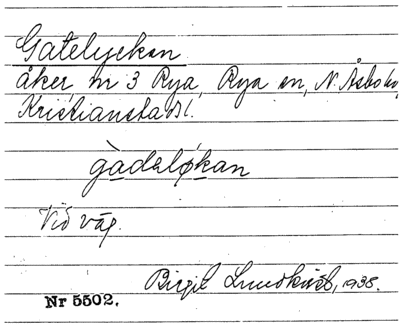 Gatelyckan
åker, nr 3 Rya, Rya sn, N. Åsbo hd,
Kristianstads l.
gàdelỳkan
Vid väg.
Birgit Lundkvist, 1938.
Nr 5502.